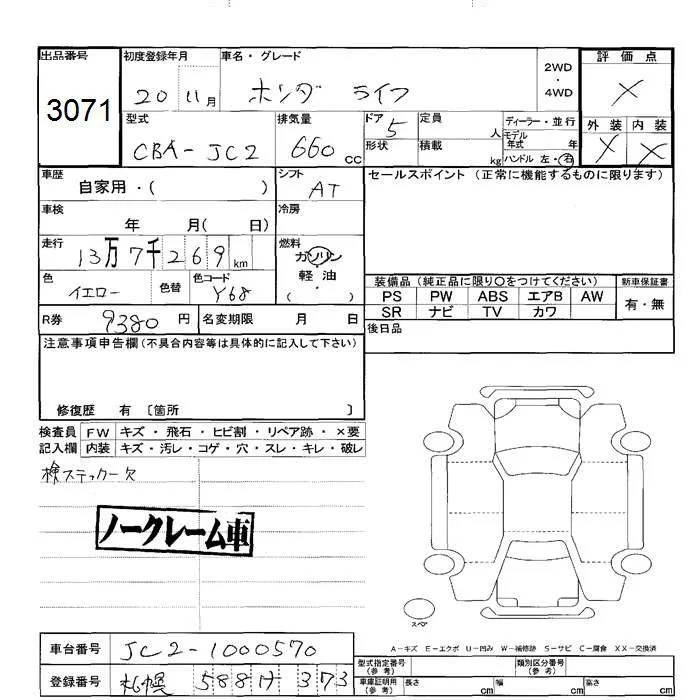 出品番号 初度登録年月 車名・グレード 評価点
3071 20 11月 ホンダ ライフ 2WD ・ 4WD ×
型式 排気量 ドア 5 定員 人 ディーラー・並行 外装 内装
CBA-JC2 660 cc 形状 積載 kg モデル年式 年 ハンドル 左・右 × ×
車歴 自家用・( ) シフト AT セールスポイント(正常に機能するものに限ります)
車検 年 月( 日) 冷房
走行 13万7千269km 燃料 ガソリン・軽油・( )
色 イエロー 色替 色コード Y68
装備品(純正品に限り○をつけてください) 新車保証書
PS PW ABS エアB AW 有・無
SR ナビ TV カワ
R券 9380円 名変期限 月 日 後日品
注意事項申告欄(不具合内容等は具体的に記入して下さい)
修復歴 有 〔箇所 〕
検査員 FW キズ・飛石・ヒビ割・リペア跡・×要
記入欄 内装 キズ・汚レ・コゲ・穴・スレ・キレ・破レ
検ステッカー欠
ノークレーム車
スペア
A-キズ E-エクボ U-凹み W-補修跡 S-サビ C-腐食 XX-交換済
車台番号 JC2-1000570 型式指定番号(参考) 類別区分番号(参考)
登録番号 札幌 588ハ373 車庫証明用(参考) 長さ cm 幅 cm 高さ cm